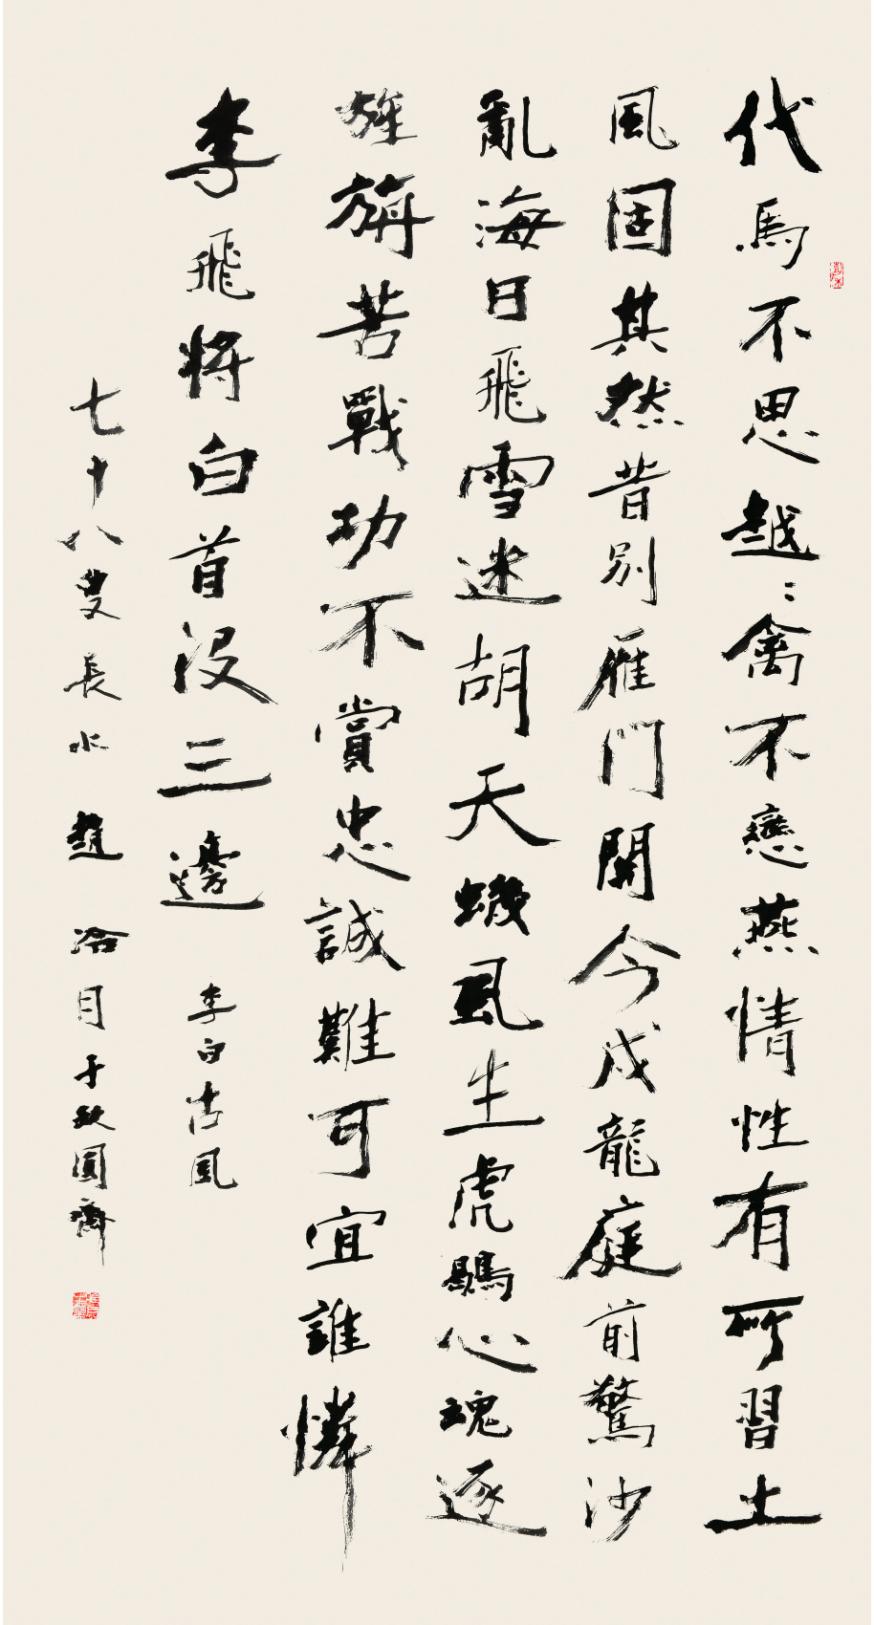 代馬不思越〻禽不戀燕情性有所習土
風固其然昔別雁門關今戍龍庭前驚沙
亂海日飛雪迷胡天蟣虱生虎鶡心魂逐
旌旃苦戰功不賞忠誠難可宜誰憐
李飛將白首没三邊
李白古風
七十八叟長水趙冷月于玖圓齋